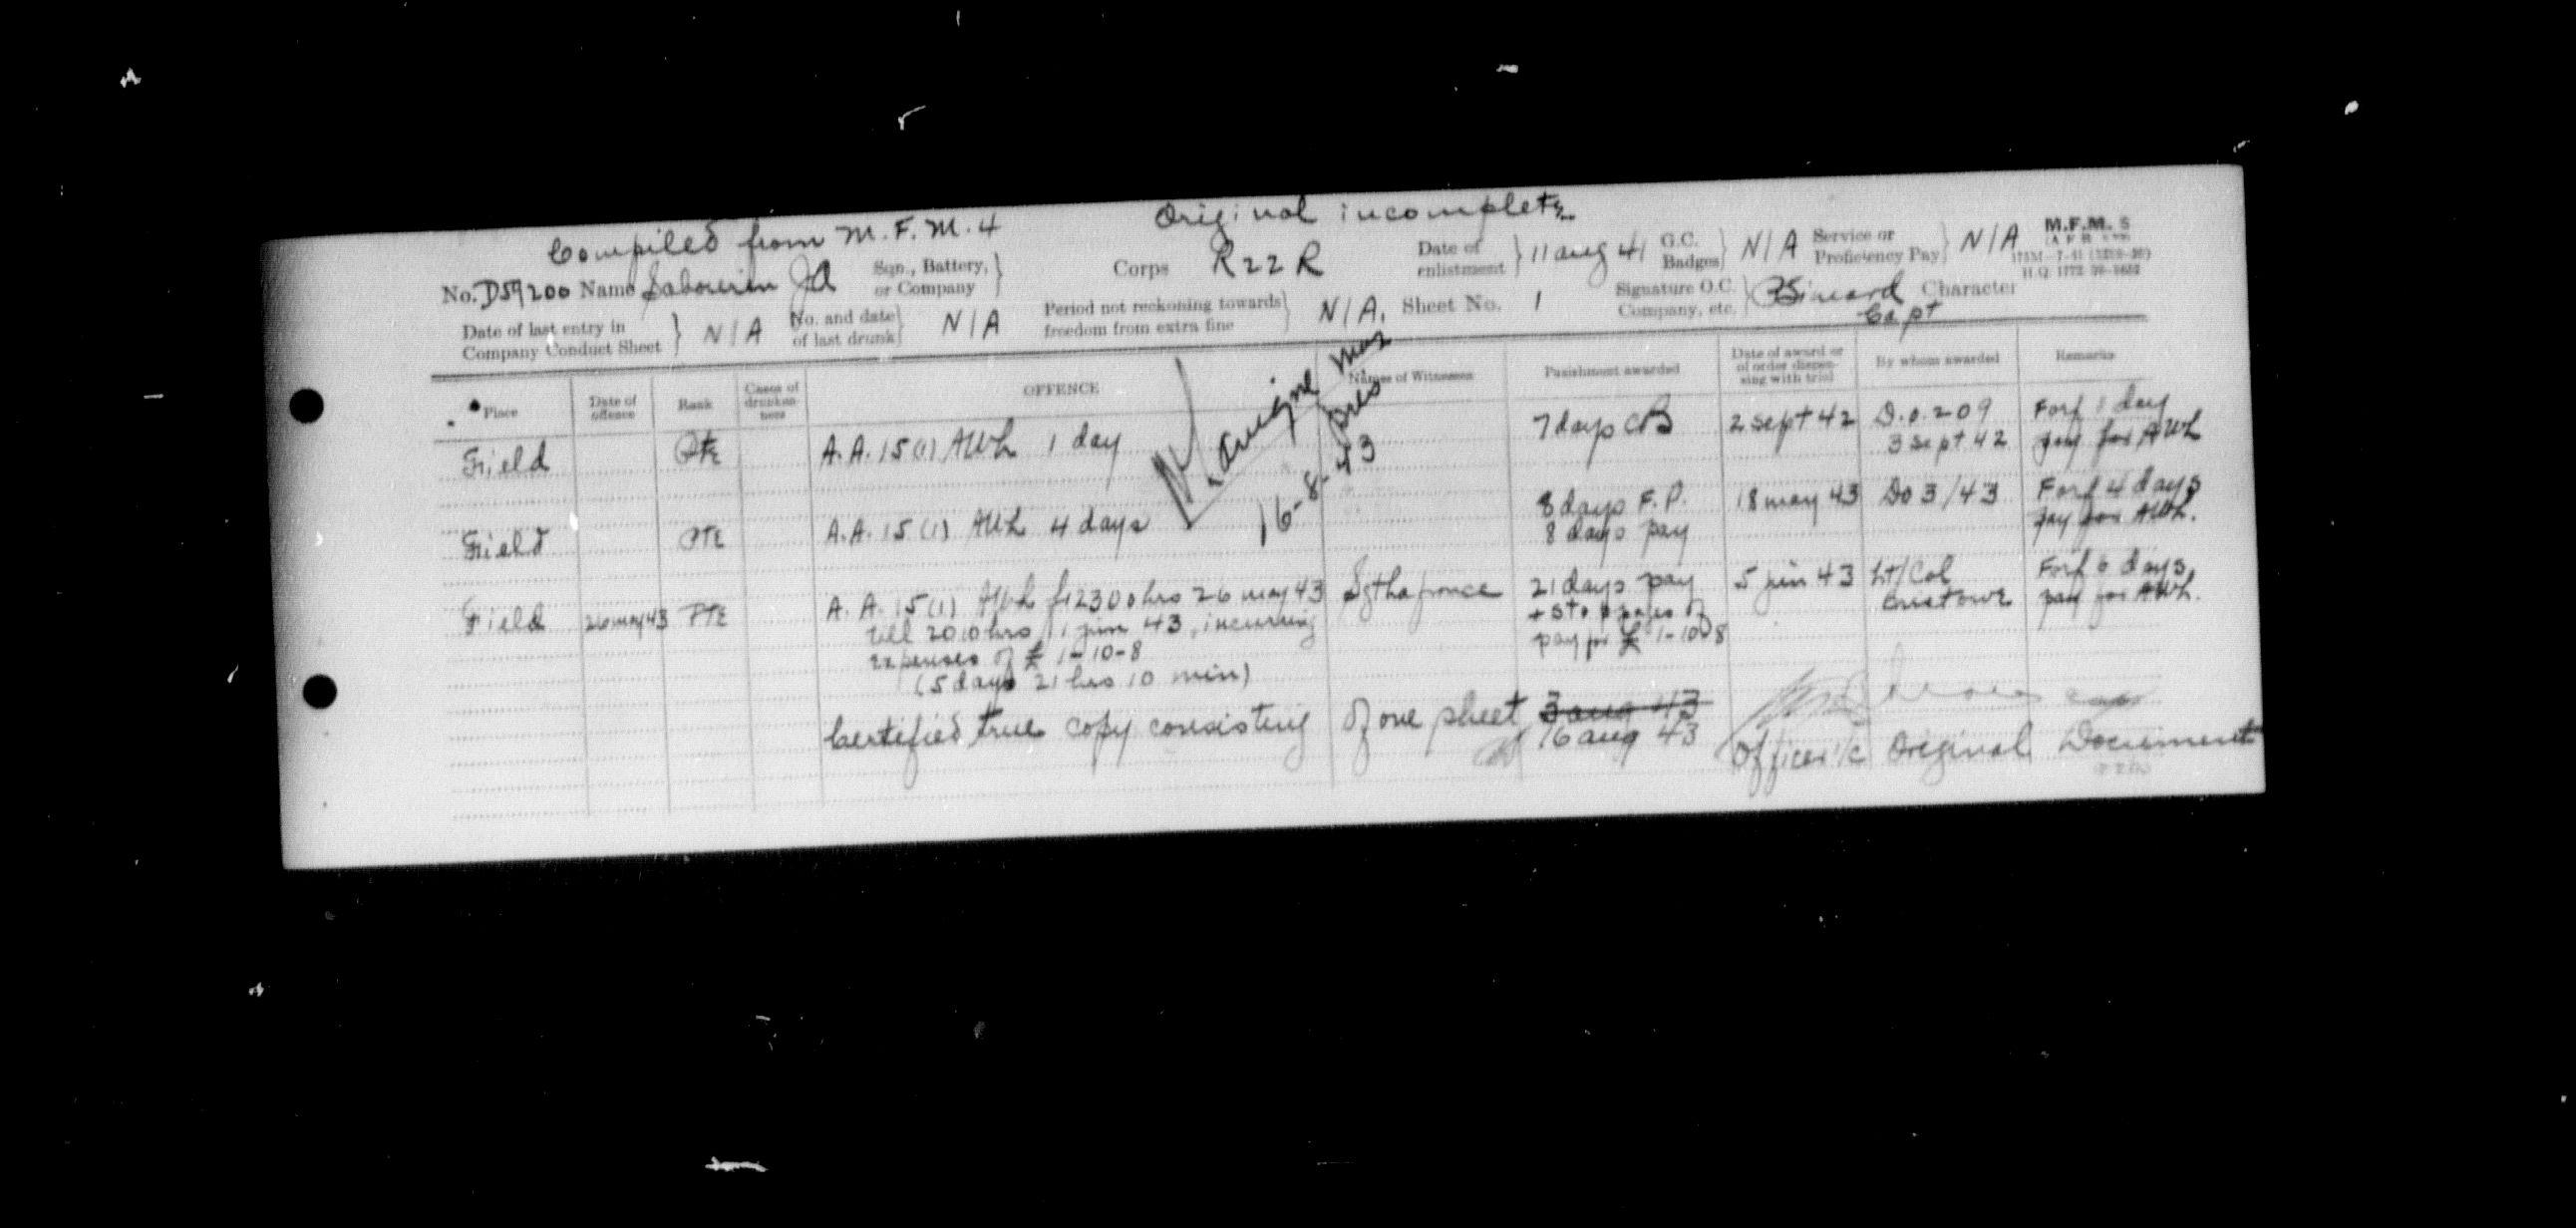 Compiled from M.F.M.4 Original incomplete
M.F.M. 5
No. D59200 Name Sabourin JA Sqn., Battery, or Company Corps R22R Date of enlistment 11 aug 41 G.C. Badges N/A Service or Proficiency Pay N/A
Date of last entry in Company Conduct Sheet N/A No. and date of last drunk N/A Period not reckoning towards freedom from extra fine N/A. Sheet No. 1 Signature O.C. Company, etc. Capt Character
Place Date of offence Rank Cases of drunkenness OFFENCE Names of Witnesses Punishment awarded Date of award or of order dispensing with trial By whom awarded Remarks
Field Pte A.A. 15(1) AWL 1 day 7 days CB 2 sept 42 D.O. 209 Forf 1 day
3 sept 42 pay for AWL
16-8-43
Field PTE A.A. 15(1) AWL 4 days 8 days F.P. 18 may 43 Do 3/43 Forf 4 days
8 days pay pay for AWL.
Field 26 may 43 PTE A.A. 15(1) AWL f 2300 hrs 26 may 43 Sgt Lafrance 21 days pay 5 jun 43 Lt/Col Forf 6 days
till 2010 hrs 1 jun 43, incurring + stoppages of pay for AWL.
expenses of £ 1-10-8 pay for £ 1-10-8
(5 days 21 hrs 10 min)
Certified true copy consisting of one sheet 3 aug 43
16 aug 43 Officer i/c Original Document